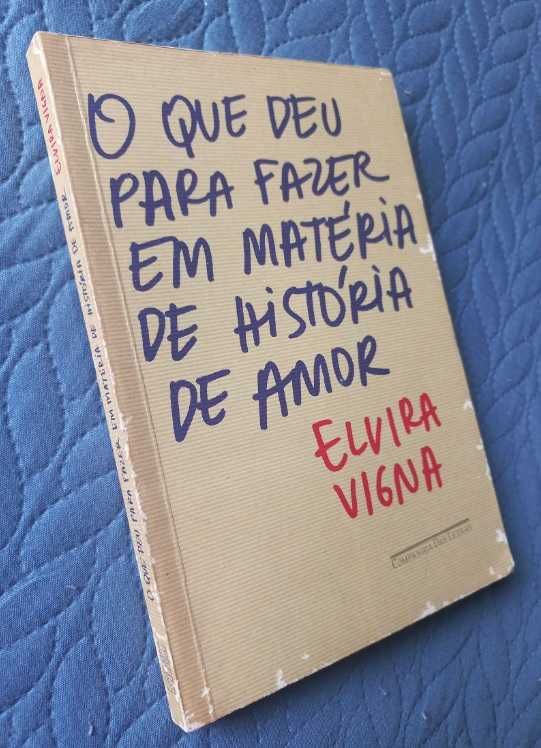 O QUE DEU
PARA FAZER
EM MATÉRIA
DE HISTÓRIA
DE AMOR
ELVIRA
VIGNA
COMPANHIA DAS LETRAS
O QUE DEU PARA FAZER EM MATÉRIA DE HISTÓRIA DE AMOR
ELVIRA VIGNA